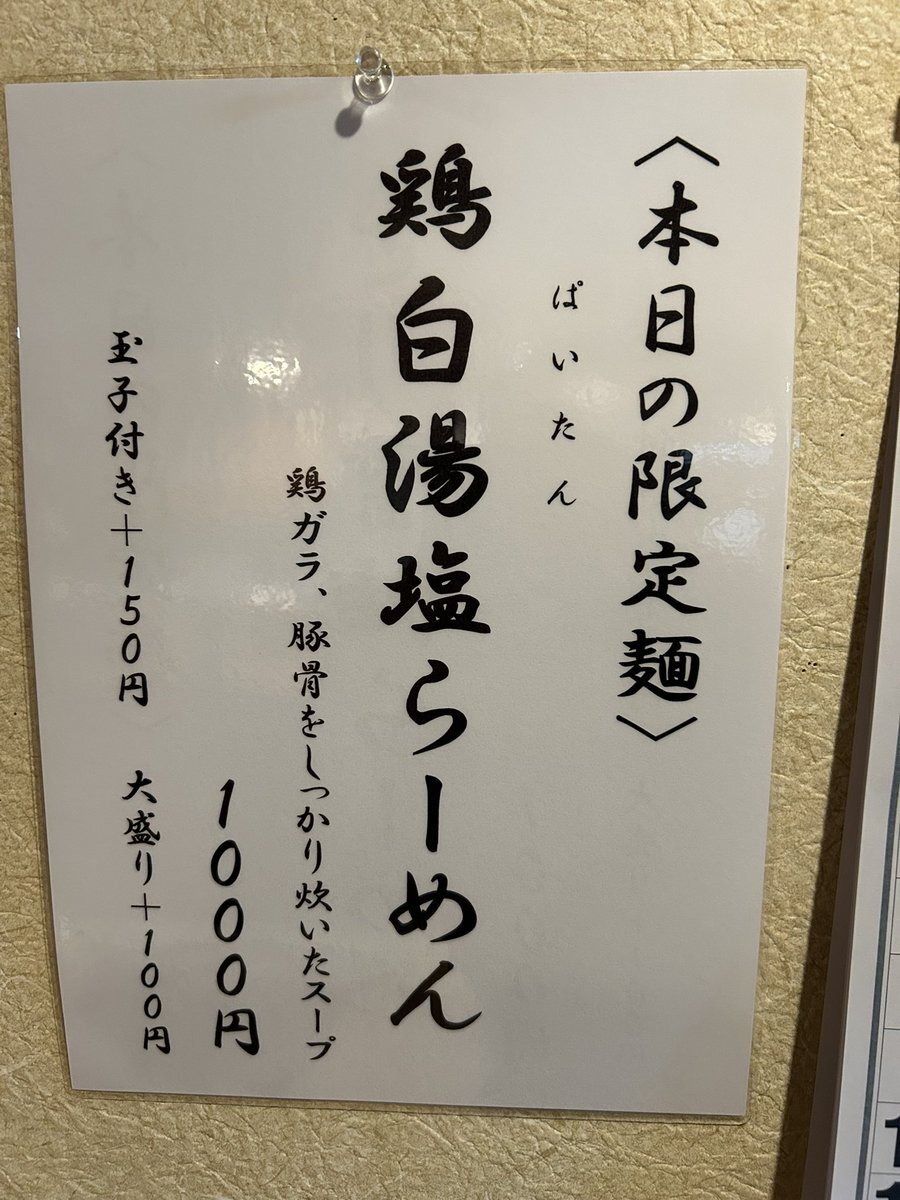 〈本日の限定麺〉
ぱいたん
鶏白湯塩らーめん
鶏ガラ、豚骨をしっかり炊いたスープ
1000円
玉子付き+150円 大盛り+100円